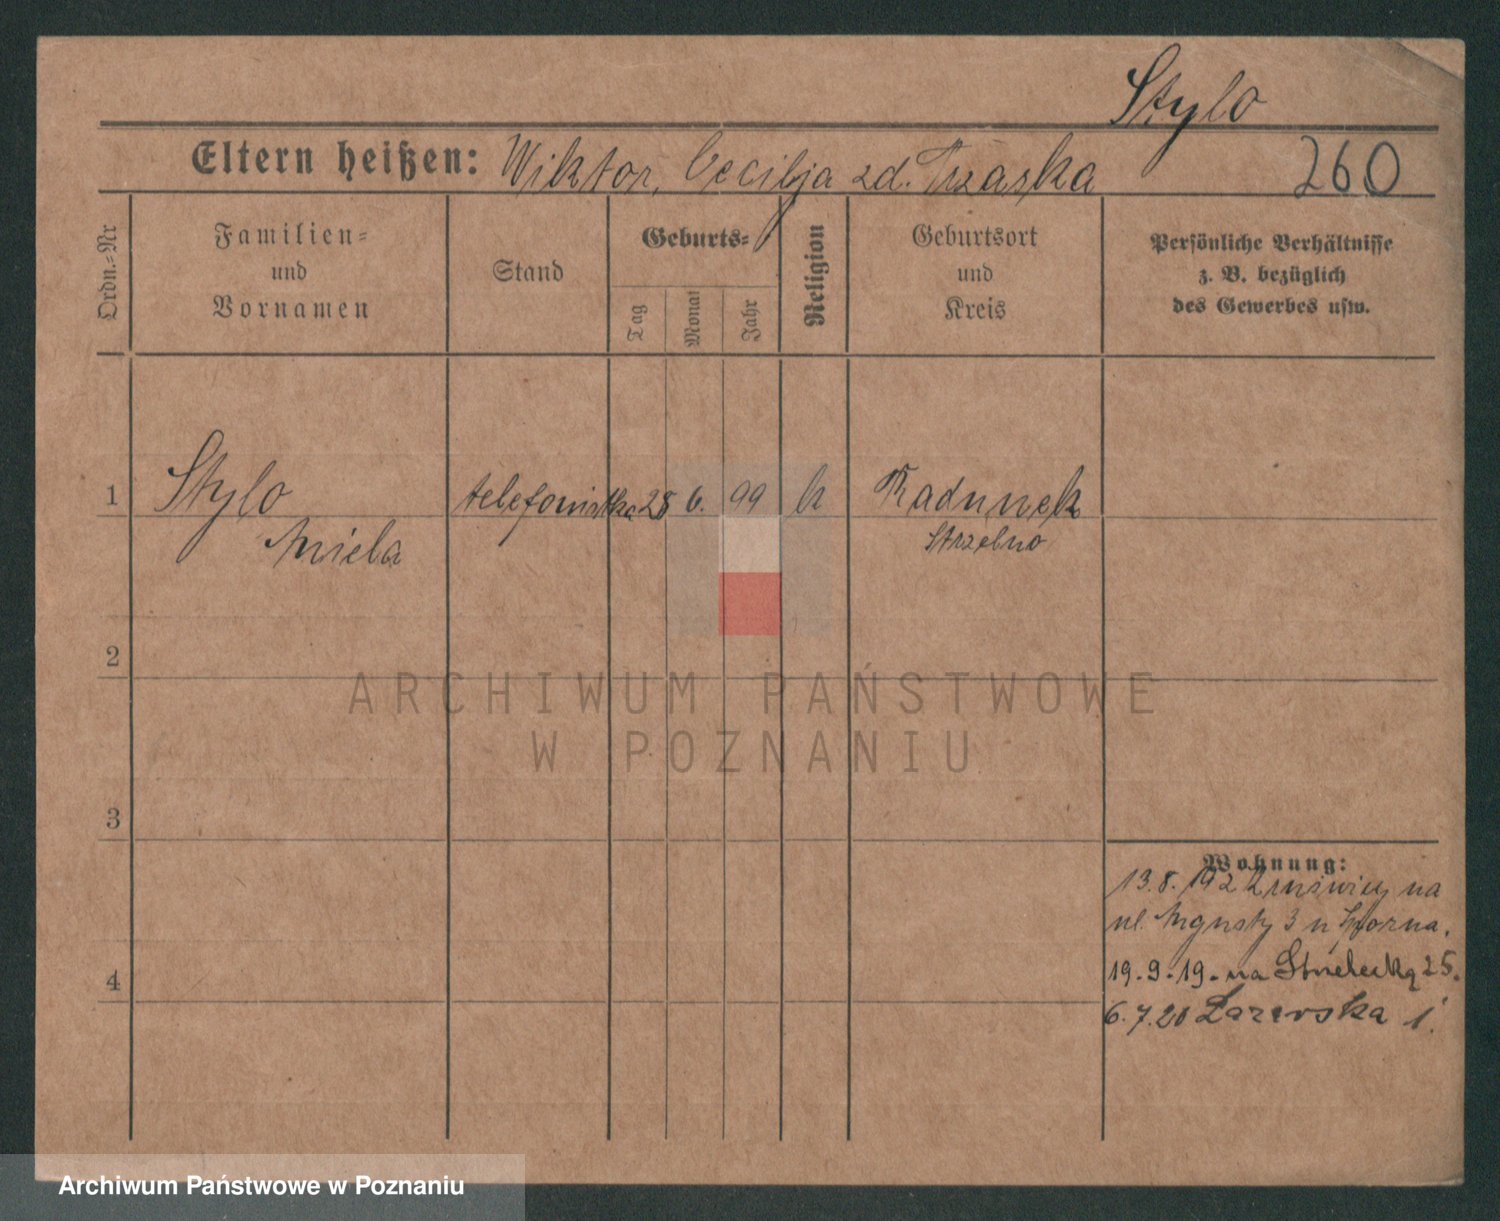 Stylo
Eltern heißen: Wiktor, Cecilja zd. Trzaska 260
Ordn.-Nr
Familien-
und
Vornamen
Stand
Geburts-
Tag
Monat
Jahr
Religion
Geburtsort
und
Kreis
Persönliche Verhältnisse
z. B. bezüglich
des Gewerbes usw.
1 Stylo telefonistka 28 6. 99 k Radunek
Aniela Strzelno
2
ARCHIWUM PAŃSTWOWE
W POZNANIU
3
Wohnung:
13.8.19 z Kruświcy na
ul. Augusty 3 u
19.9.19. na Strzelecką 25.
6.7.20 1.
4
Archiwum Państwowe w Poznaniu